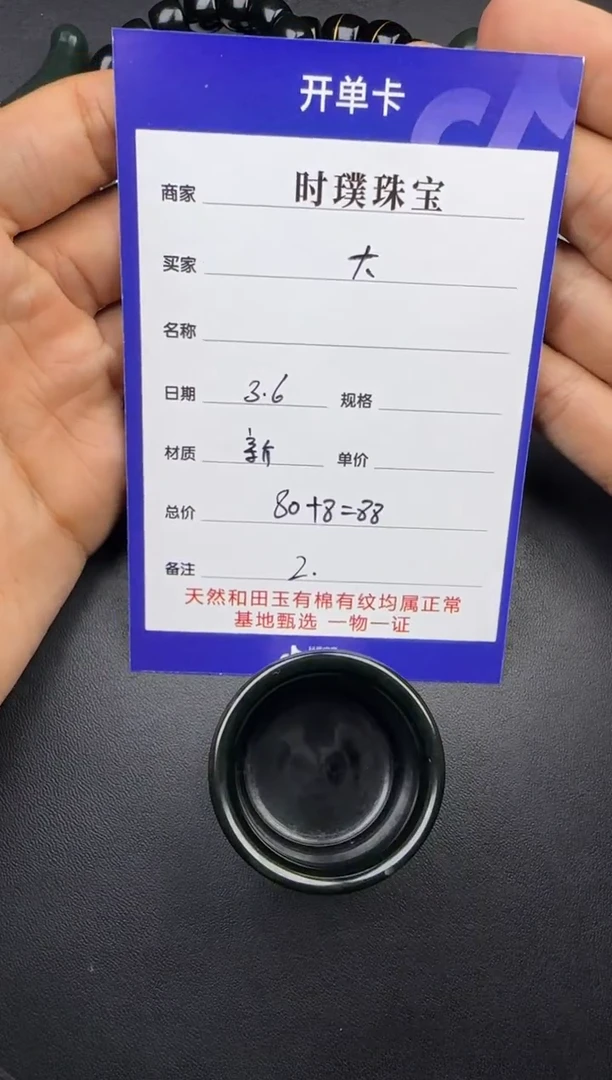 开单卡
商家 时璞珠宝
买家 大
名称
日期 3.6 规格
材质 新 单价
总价 80+8=88
备注 2.
天然和田玉有棉有纹均属正常
基地甄选 一物一证